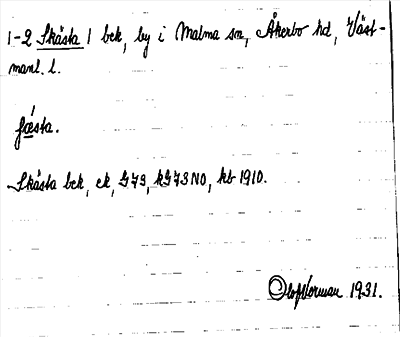 1-2 Skästa / bek, by i Malma sn, Åkerbo hd, Väst-
manl. l.
fǽsta.
Skästa bek, ek, G73, kG73NO, kb 1910.
Olof Vorman 1931.